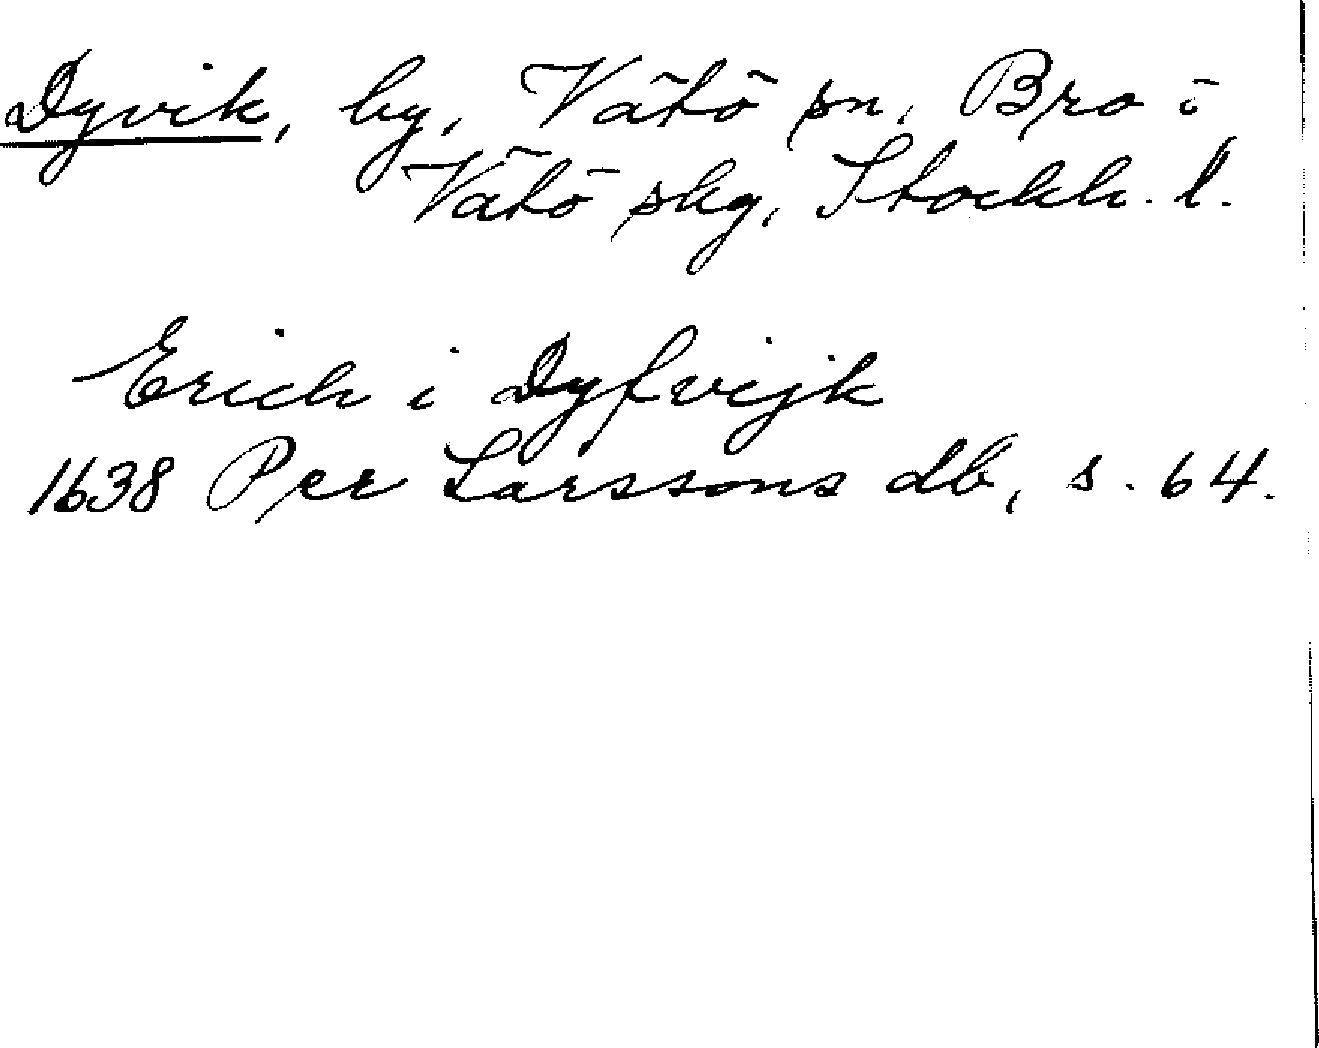 Dyvik, by, Vätö sn, Bro o
Vätö skg, Stockh. l.
Erich i Dyfvijk
1638 Per Larssons db, s. 64.